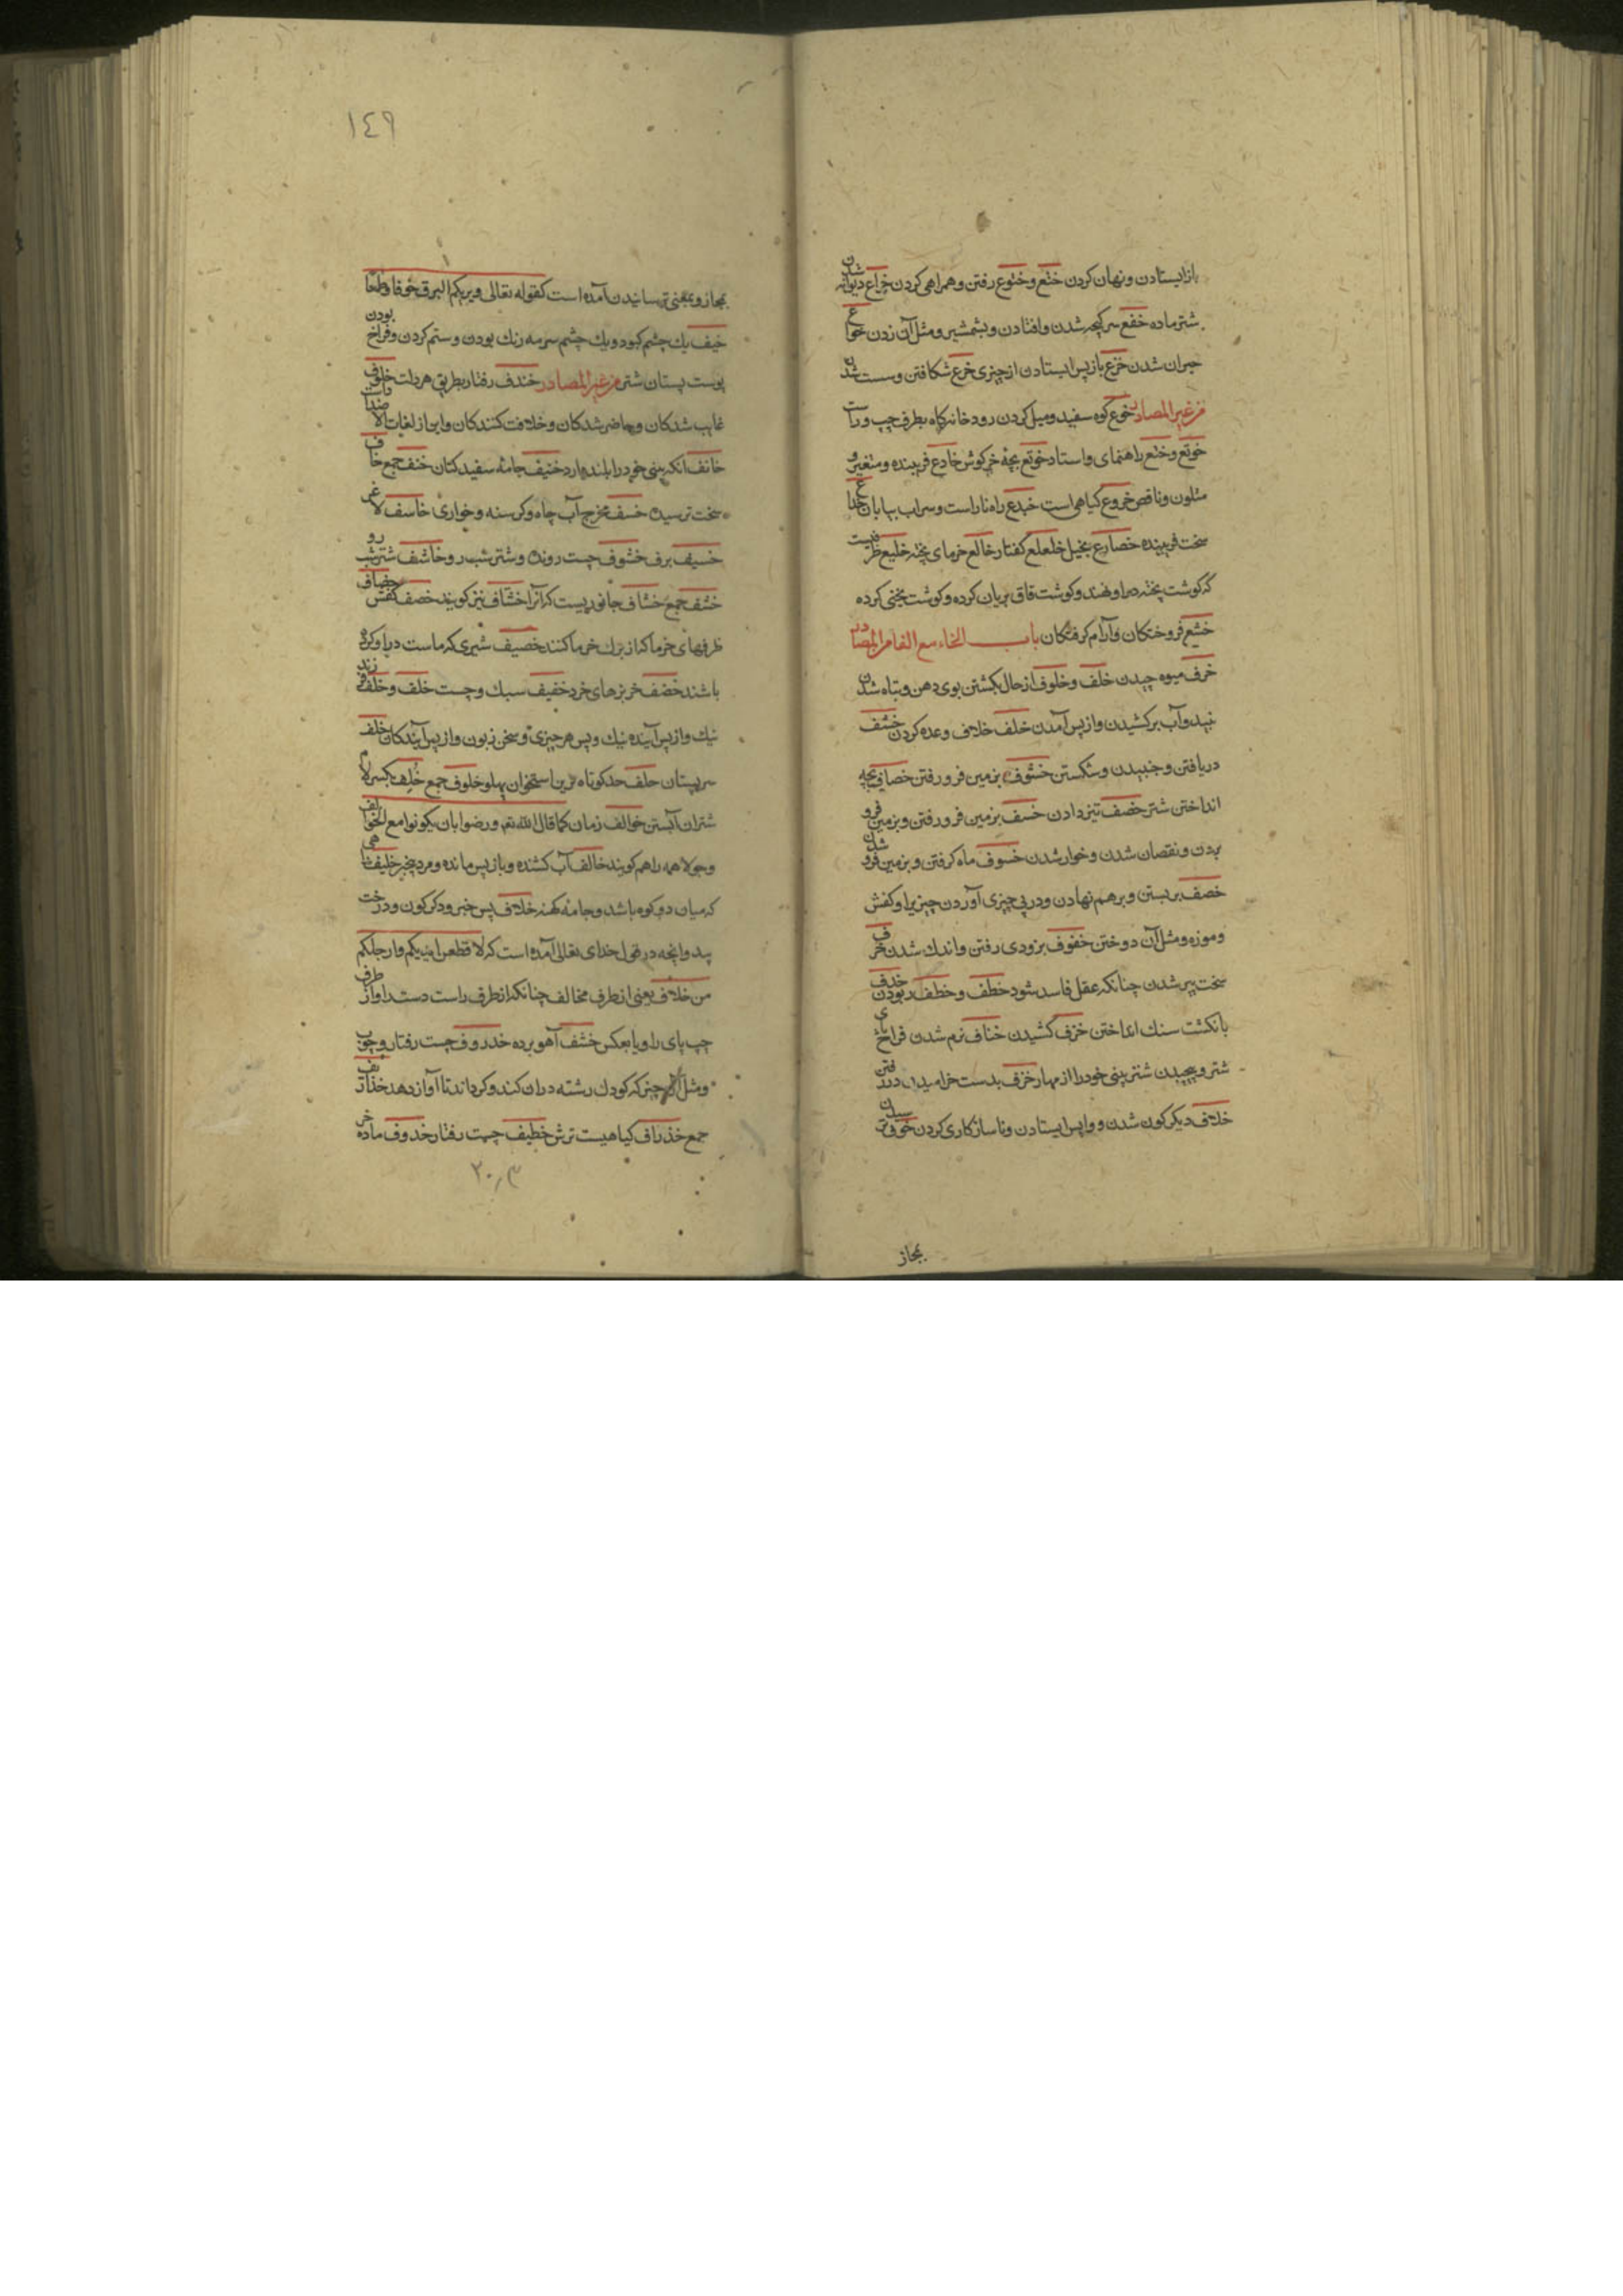 باز ایستادن و نهان کردن ختع و ختوع رفتن و همراهی کردن خراع دیوانه شدن
شتر ماده خفع سرکیجه شدن و افتادن و بشمشیر و مثل آن زدن خواع
حیران شدن خزع باز پس ایستادن از چیزی خرع شکافتن و سست شدن
من غیر المصادر خوع کوه سفید و میل کردن رودخانه کاه بطرف چپ و راست
خوتع و ختع راهنمای و استاد خوتع بچهٔ خرکوش خادع فریبنده و متغیر و
متلون و ناقص خروع کیاهی است خیدع راه ناراست و سراب بیابان خداع
سخت فریبنده خصارع بخیل خلعلع کفتار خالع خرمای پخته خلیع ظرفیست
که کوشت پخته در او نهند و کوشت قاق بریان کرده و کوشت یخنی کرده
خشع فروختکان و آرام کرفتکان باب الخاء مع الفا من المصادر
خرف میوه چیدن خلف و خلوف از حال بکشتن بوی دهن و تباه شدن
نبید و آب برکشیدن و از پس آمدن خلف خلاف وعده کردن خشف
دریافتن و جنبیدن و شکستن خشوف بزمین فرو رفتن خصاف بچه
انداختن شتر خضف تیز دادن خسف بزمین فرو رفتن و بزمین فرو
بردن و نقصان شدن و خوار شدن خسوف ماه کرفتن و بزمین فرو شدن
خصف بر بستن و بر هم نهادن و در پی چیزی آوردن چیزیرا و کفش
و موزه و مثل آن دوختن خفوف بزودی رفتن و اندک شدن خرف
سخت پیر شدن چنانکه عقل فاسد شود خطف و خطف ربودن خذف
بانکشت سنک انداختن خزف کشیدن خناف نرم شدن فراخ پای
شتر و پیچیدن شتر بینی خود را از مهار خزف بدست خرامیدن در رفتن
خلاف دیکر کون شدن و واپس ایستادن و ناسازکاری کردن خوف ترسیدن
بمجاز
١٤٩
بمجاز و بمعنی ترسانیدن آمده است کقوله تعالی و یریکم البرق خوفا و طمعا
خیف یک چشم کبود و یک چشم سرمه رنک بودن و ستم کردن و فراخ بودن
پوست پستان شتر من غیر المصادر خندف رفتار بطریق هردلت خلوف
غایب شدکان و حاضر شدکان و خلافت کنندکان و این از لغات الاضداد است
خانف آنکه بینی خود را بلند دارد خنیف جامهٔ سفید کتان خنف جمع خاف
سخت ترسیده خسف مخرج آب چاه و کرسنه و خواری خاسف لاغر
خسیف برف خشوف چست رونده و شتر شب رو خاشف شتر شب رو
خشف جمع خشاف جانوریست که آنرا خشّاف نیز کویند خصف کفش خصاف
ظرفهای خرما که از برک خرما کنند خصیف شیری که ماست در او کرده
باشند خضف خربزهای خرد خفیف سبک و چست خلف و خلف فرزند
نیک و از پس آینده نیک و پس هر چیزی و سخن زبون و از پس آیندکان خلف
سر پستان خلف حد کوتاه ترین استخوان پهلو خلوف جمع خلف بکسر لام
شتران آبستن خوالف زمان کما قال الله تع و رضوا بان یکونوا مع الخوالف
و جولاهمه را هم کویند خالف آب کشنده و باز پس مانده و مرد بیخیر خلیف راهی
که میان دو کوه باشد و جامهٔ کهنه خلاف پس خبر و دکرکون و درخت
بید و آنچه در قول خدای تعالی آمده است که لاقطعن ایدیکم و ارجلکم
من خلاف یعنی از طرف مخالف چنانکه از طرف راست دست را و از طرف
چپ پای را و یا بعکس خشف آهو بره خذروف چست رفتار و چوب
و مثل آن چیز که کودک رشته در ان کند و کرداند تا آواز دهد خذاریف
جمع خذراف کیاهیست ترش خطیف چست رفتار خدوف ماده خر